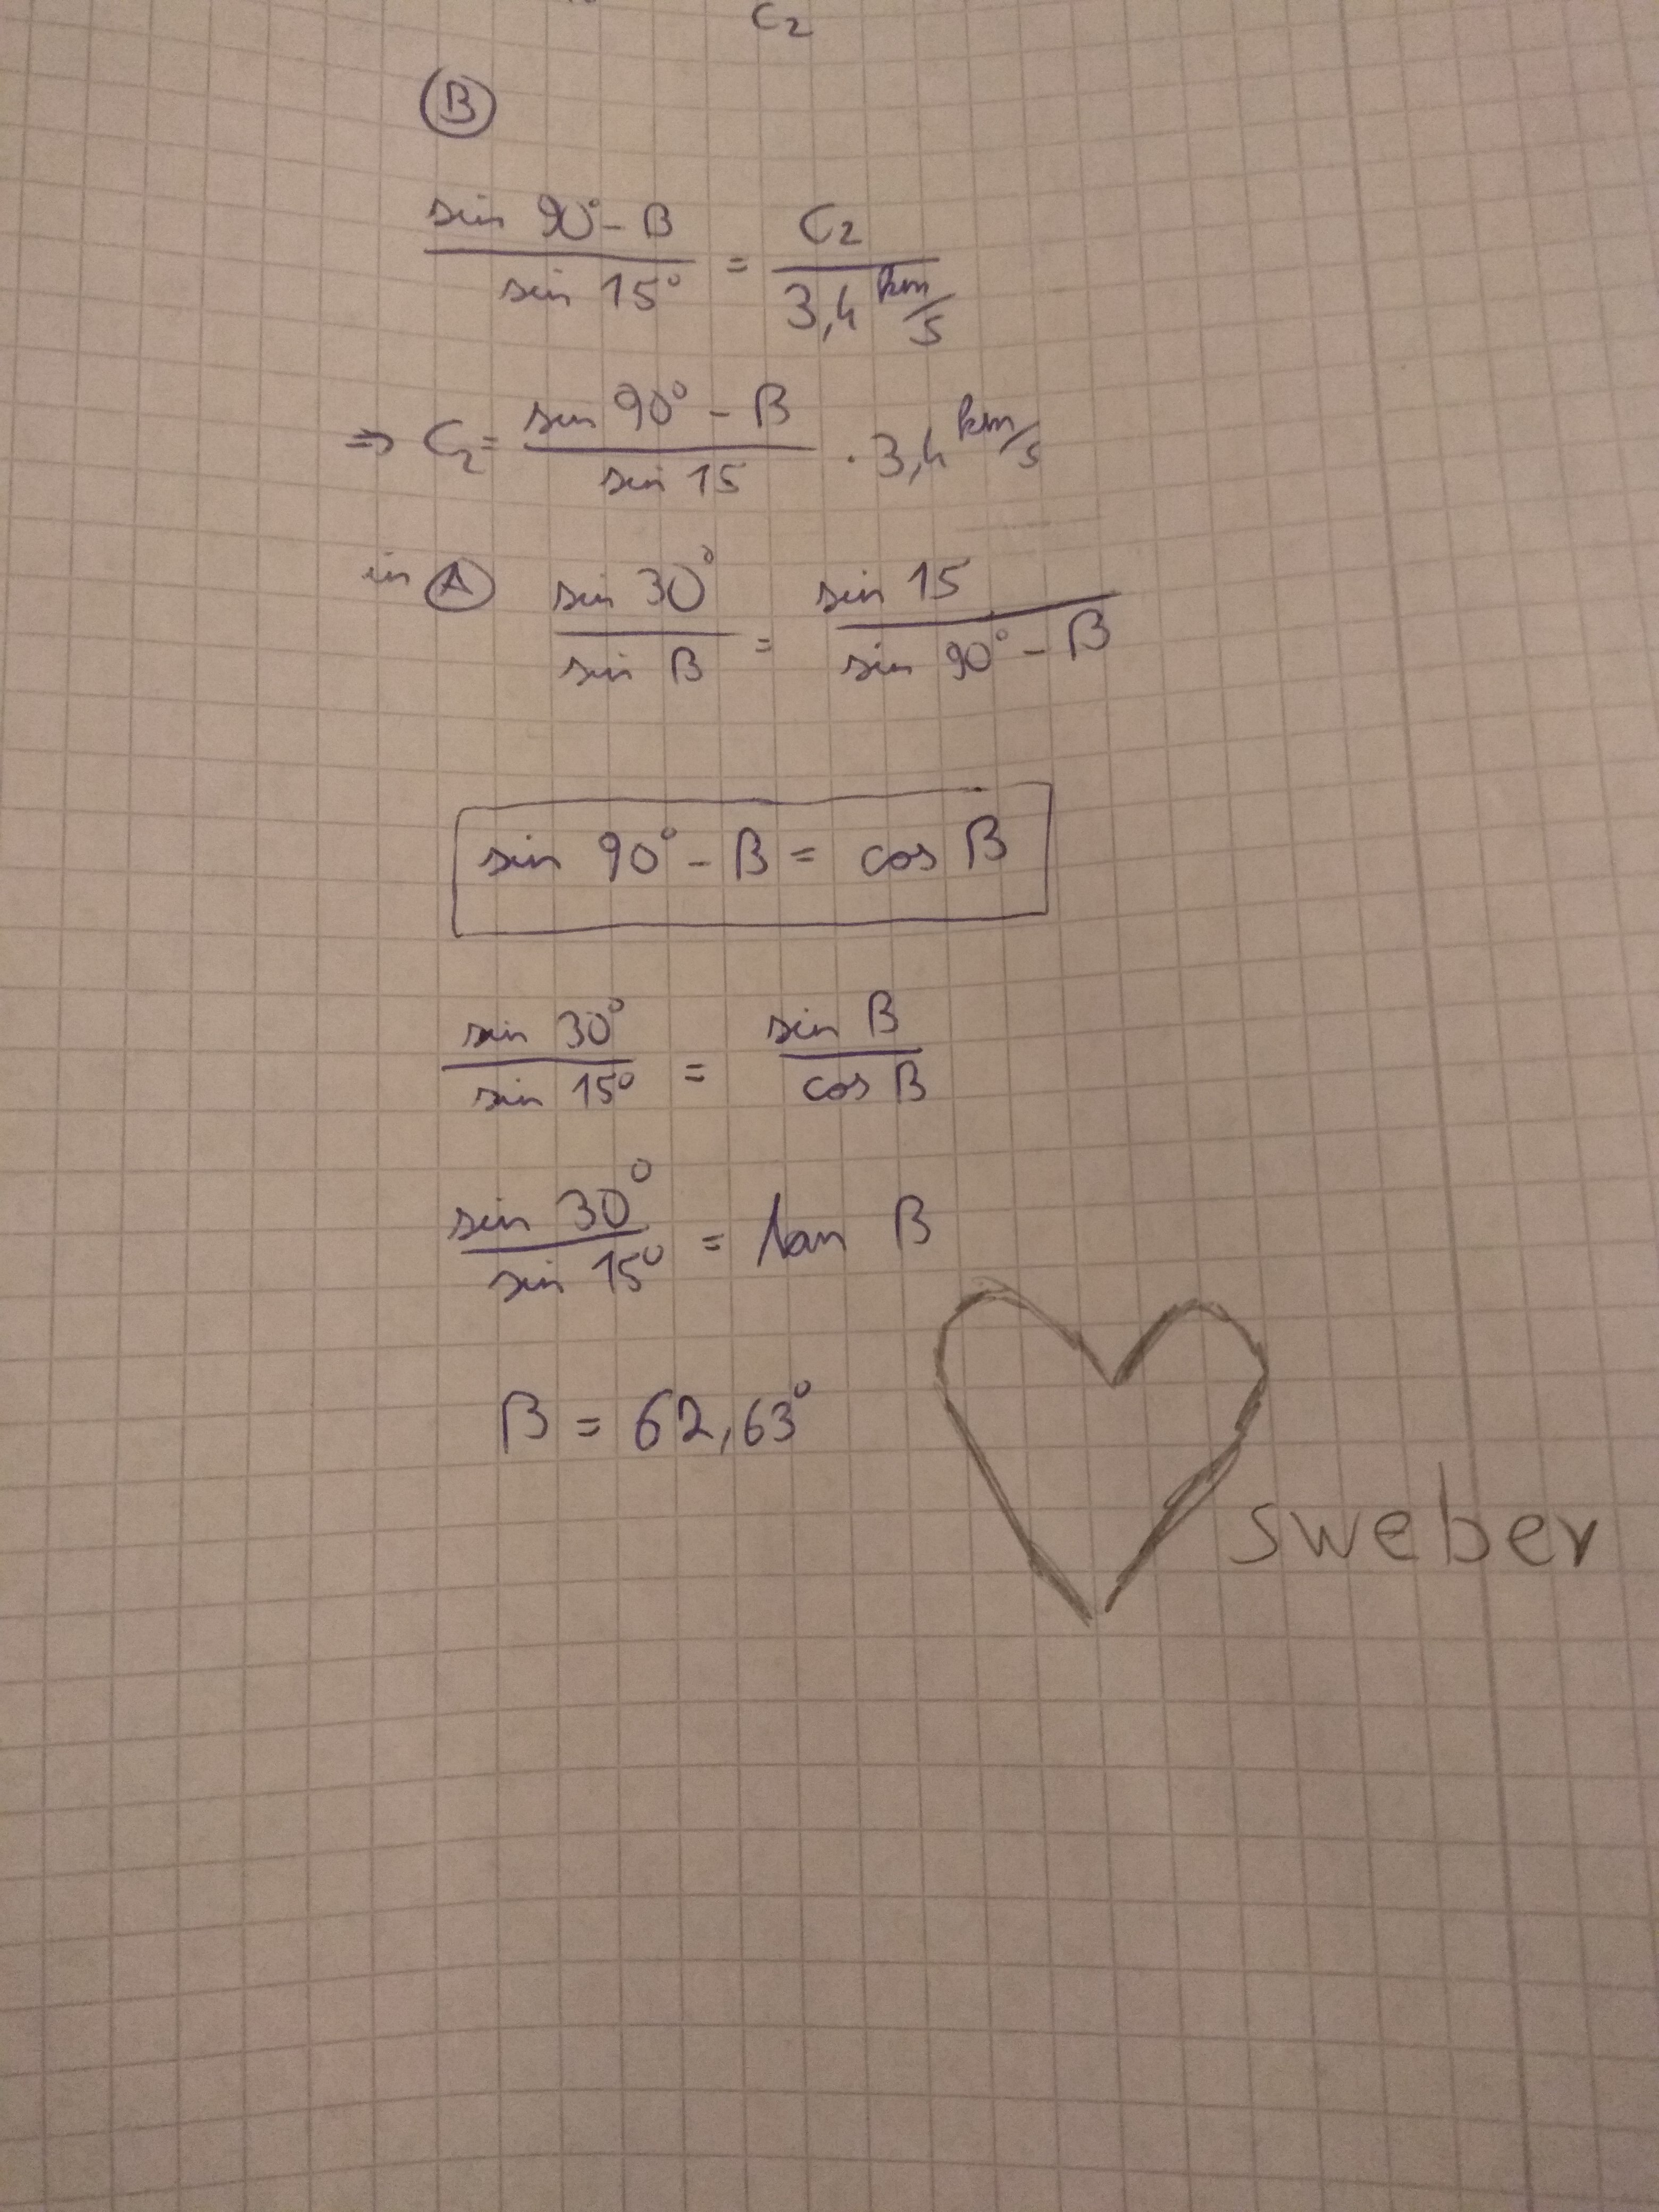 C₂
Ⓑ
sin 90° - β / sin 15° = C₂ / 3,4 km/s
⇒ C₂ = sin 90° - β / sin 15 · 3,4 km/s
in Ⓐ sin 30° / sin β = sin 15 / sin 90° - β
sin 90° - β = cos β
sin 30° / sin 15° = sin β / cos β
sin 30° / sin 15° = tan β
β = 62,63°
sweber